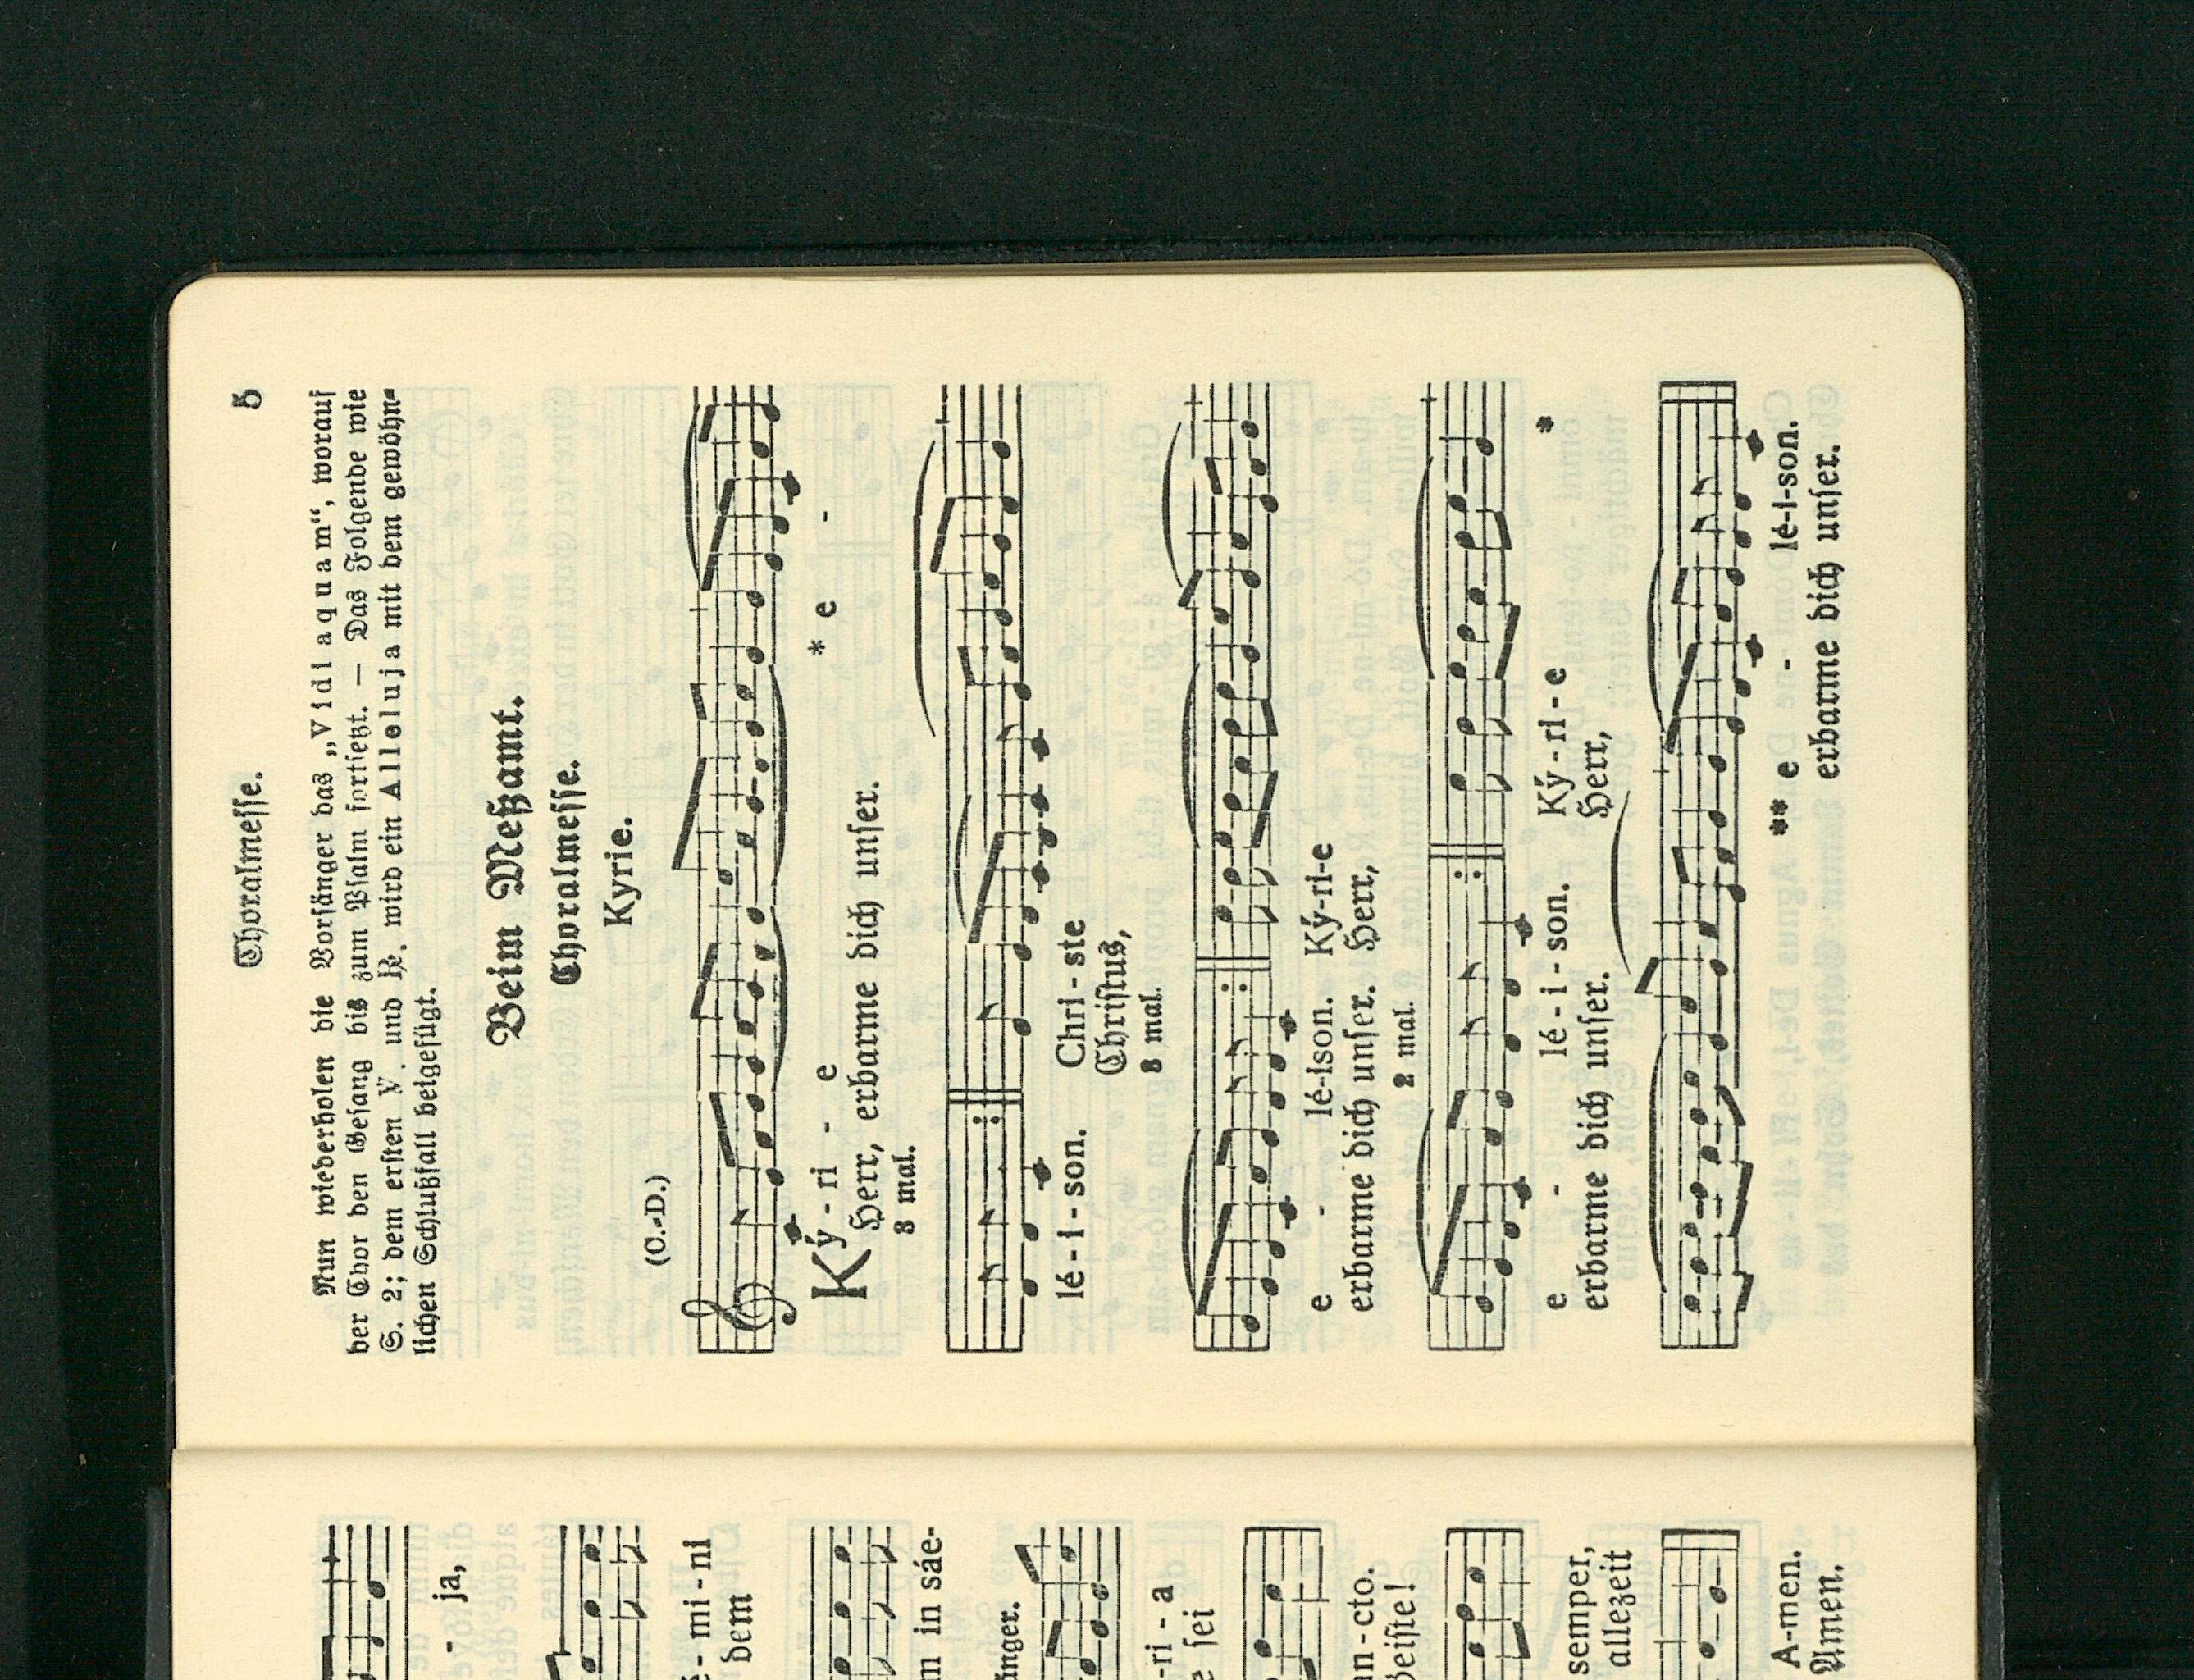 Choralmesse. 5
Nun wiederholen die Vorsänger das „Vidi aquam“, worauf
der Chor den Gesang bis zum Psalm fortsetzt. — Das Folgende wie
S. 2; dem ersten V. und R. wird ein Alleluja mit dem gewöhn-
lichen Schlußfall beigefügt.
Beim Meßamt.
Choralmesse.
Kyrie.
(O.-D.)
Ký - ri - e * e -
Herr, erbarme dich unser.
3 mal.
lé - i - son. Chri - ste
Christus,
3 mal.
e - lé-ison. Ký-ri-e
erbarme dich unser. Herr,
2 mal.
e - lé - i - son. Ký - ri - e *
erbarme dich unser. Herr,
** e - lé-i-son.
erbarme dich unser.
- ja,
é - mi - ni
dem
m in sáe-
nger.
-ri - a
e sei
an - cto.
Geiste!
semper,
allezeit
A-men.
Amen.